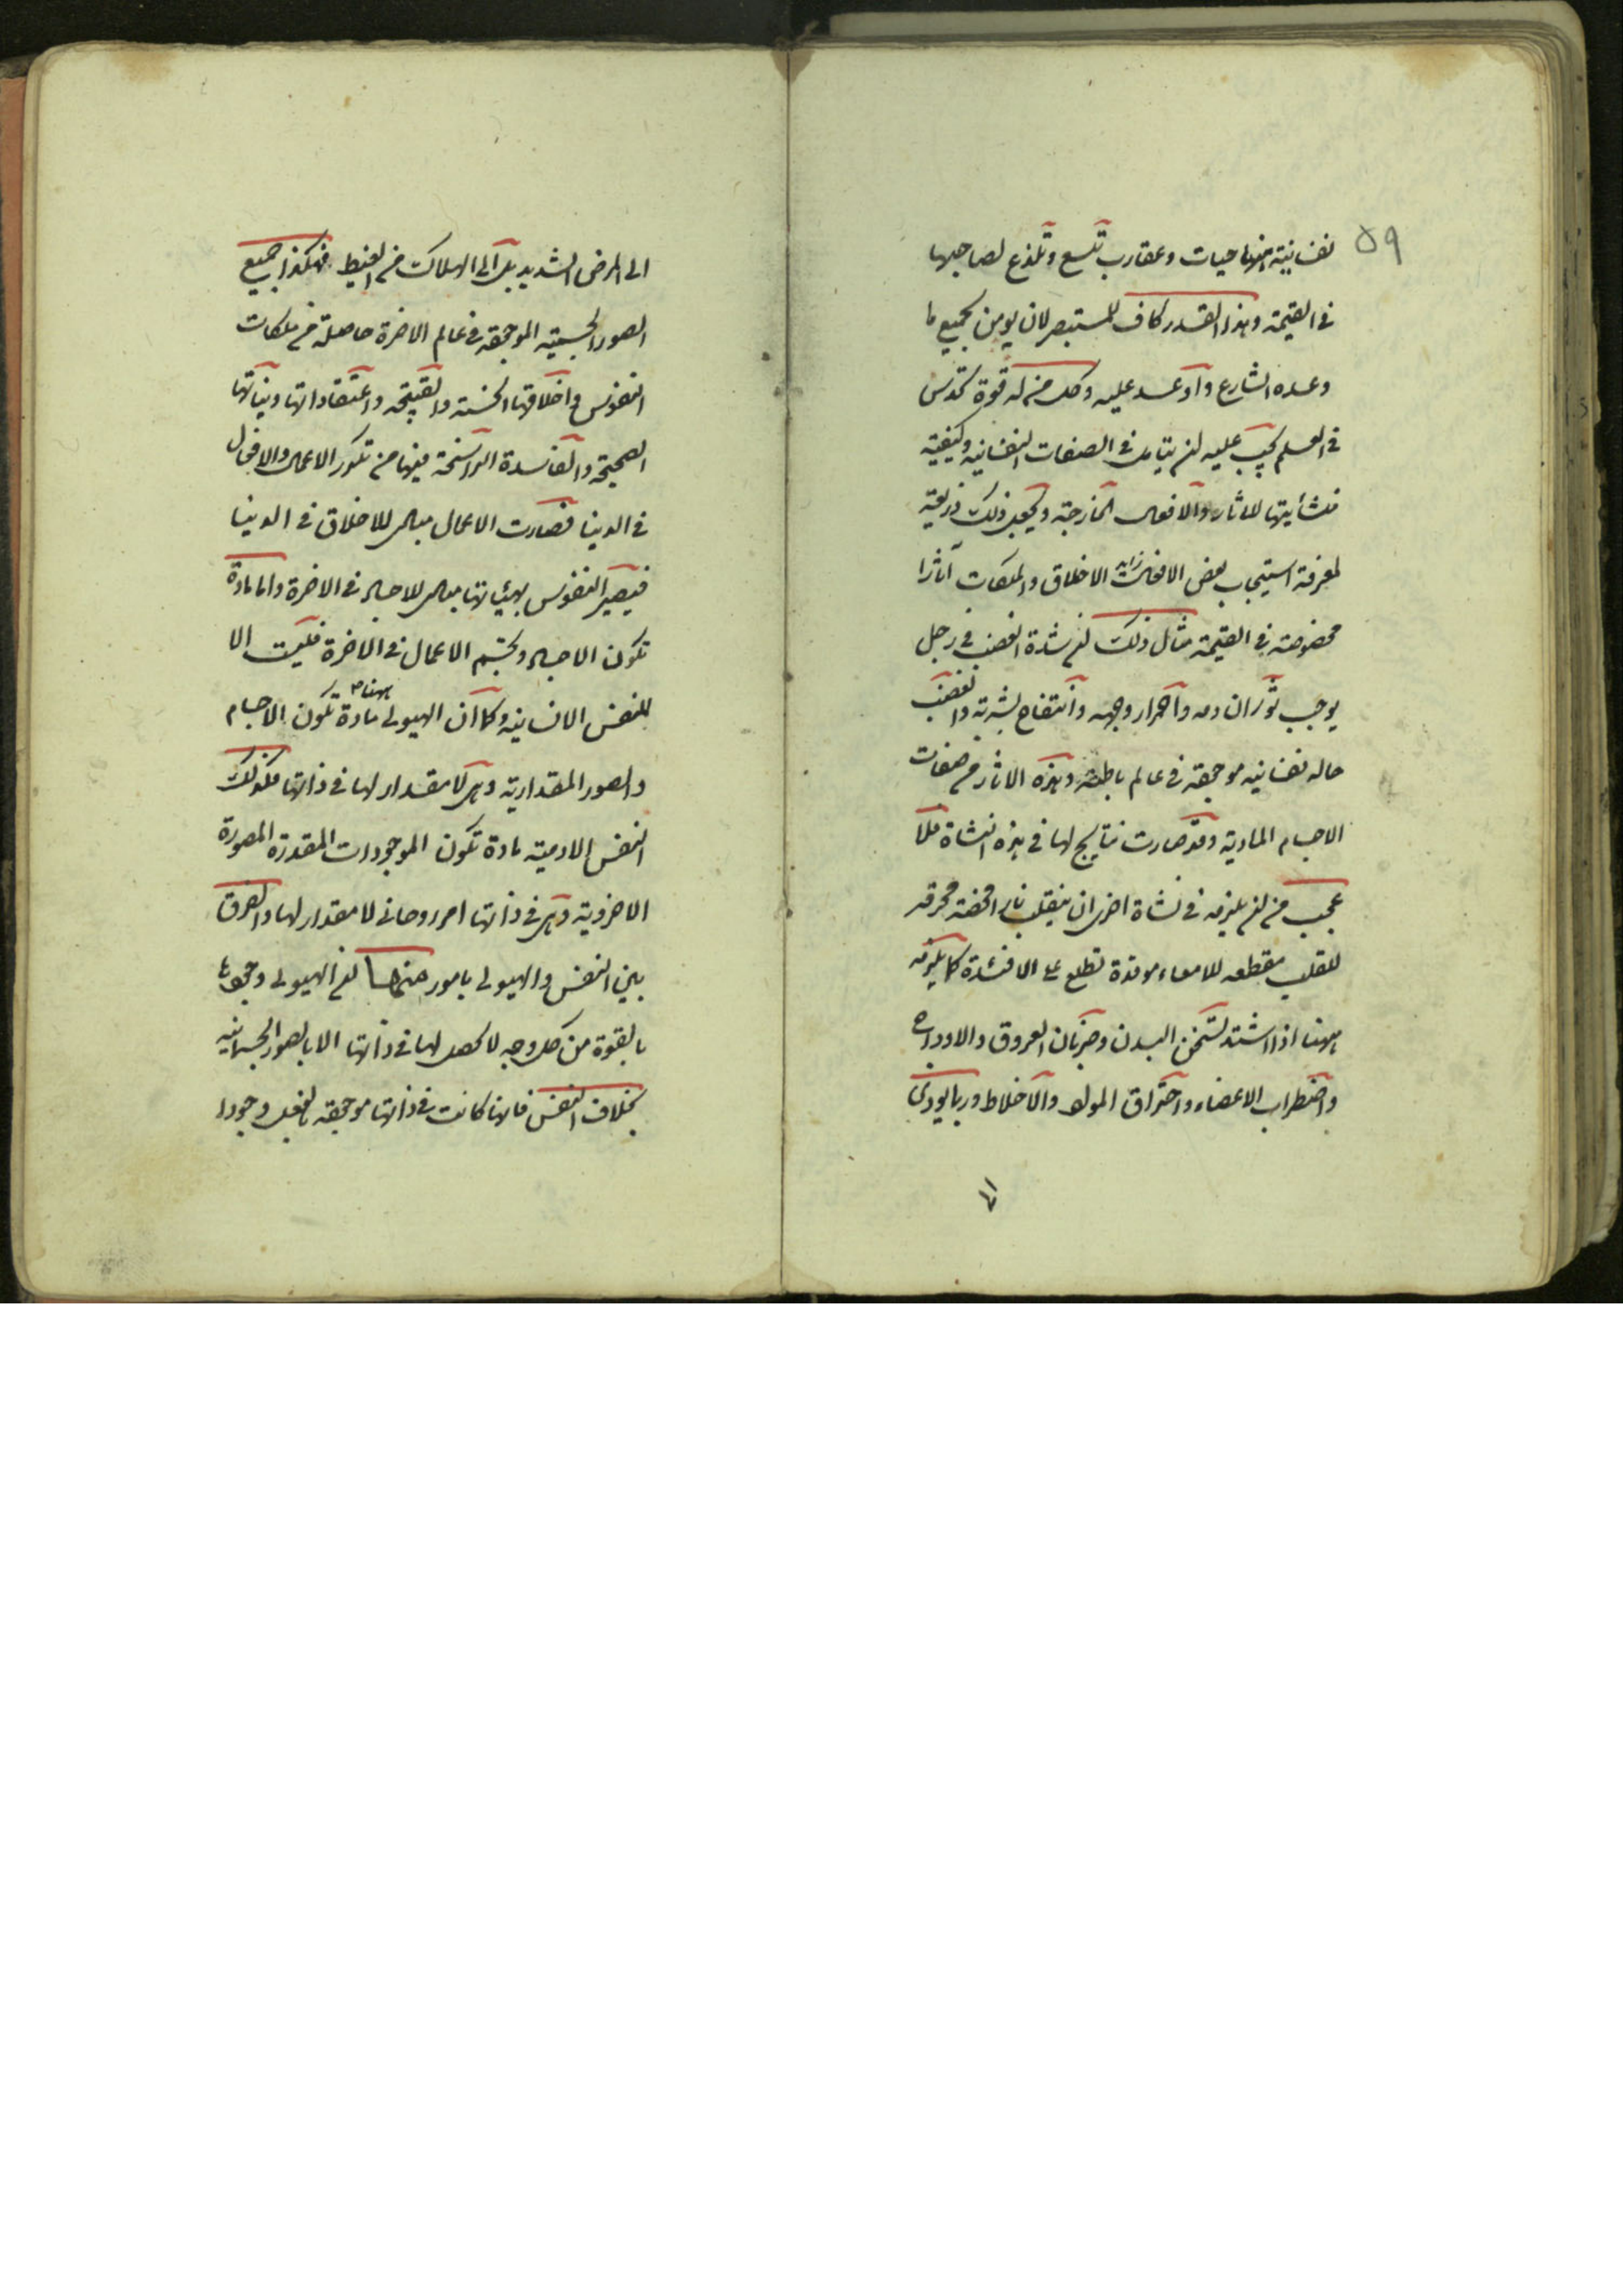 ٥٩
نفسانية انها حيات وعقارب تلسع وتلذع لصاحبها
في القيمة وهذا القدر كاف للمستبصر لان يومن بجميع ما
وعده الشارع واوعد عليه وكل من له قوة تحدس
في العلم يجب عليه ان يتامل في الصفات النفسانيه وكيفية
منشأيتها للاثار والافعال الخارجة ويجعل ذلك ذريعة
لمعرفة استيجاب بعض الاخلاق والملكات آثارا
مخصوصة في القيمة مثال ذلك ان شدة الغضب في رجل
يوجب ثوران دمه واحمرار وجهه وانتفاخ بشرته والغضب
حاله نفسانيه موجودة في عالم باطنه وهذه الاثار من صفات
الاجسام المادية وقد صارت نتايج لها في هذه النشاة فلا
عجب من ان يلزمه في نشاة اخرى ان ينقلب نارا محضة محرقه
للقلب مقطعه للامعاء موقدة تطلع على الافئدة كما يلزمه
ههنا اذا اشتد تسخن البدن وضربان العروق والاوداج
واضطراب الاعضاء واحتراق المواد والاخلاط وربما يودى
الى
الى المرض الشديد بل الى الهلاك من الغيظ فهكذا جميع
الصور الجسمية الموجودة في عالم الاخرة حاصلة من ملكات
النفوس واخلاقها الحسنه والقبيحه واعتقاداتها ونياتها
الصحيحة والفاسدة الراسخة فيها من تكرر الاعمال والافعال
في الدنيا فصارت الاعمال مبادى للاخلاق في الدنيا
فيصير النفوس بهيئاتها مبادى للاجساد في الاخرة واما مادة
تكون الاجساد وتجسم الاعمال في الاخرة فليست الا
النفس الانسانيه وكما ان الهيولى ههنا مادة تكون الاجسام
والصور المقدارية وهى لا مقدار لها في ذاتها فكذلك
النفس الادمية مادة تكون الموجودات المقدرة المصورة
الاخروية وهى في ذاتها امر روحانى لا مقدار لها والفرق
بين النفس والهيولى بامور منها ان الهيولى وجودها
بالقوة من كل وجه لا تحصل لها في ذاتها الا بالصور الجسمانيه
بخلاف النفس فانها كانت في ذاتها موجودة بالفعل وجودا